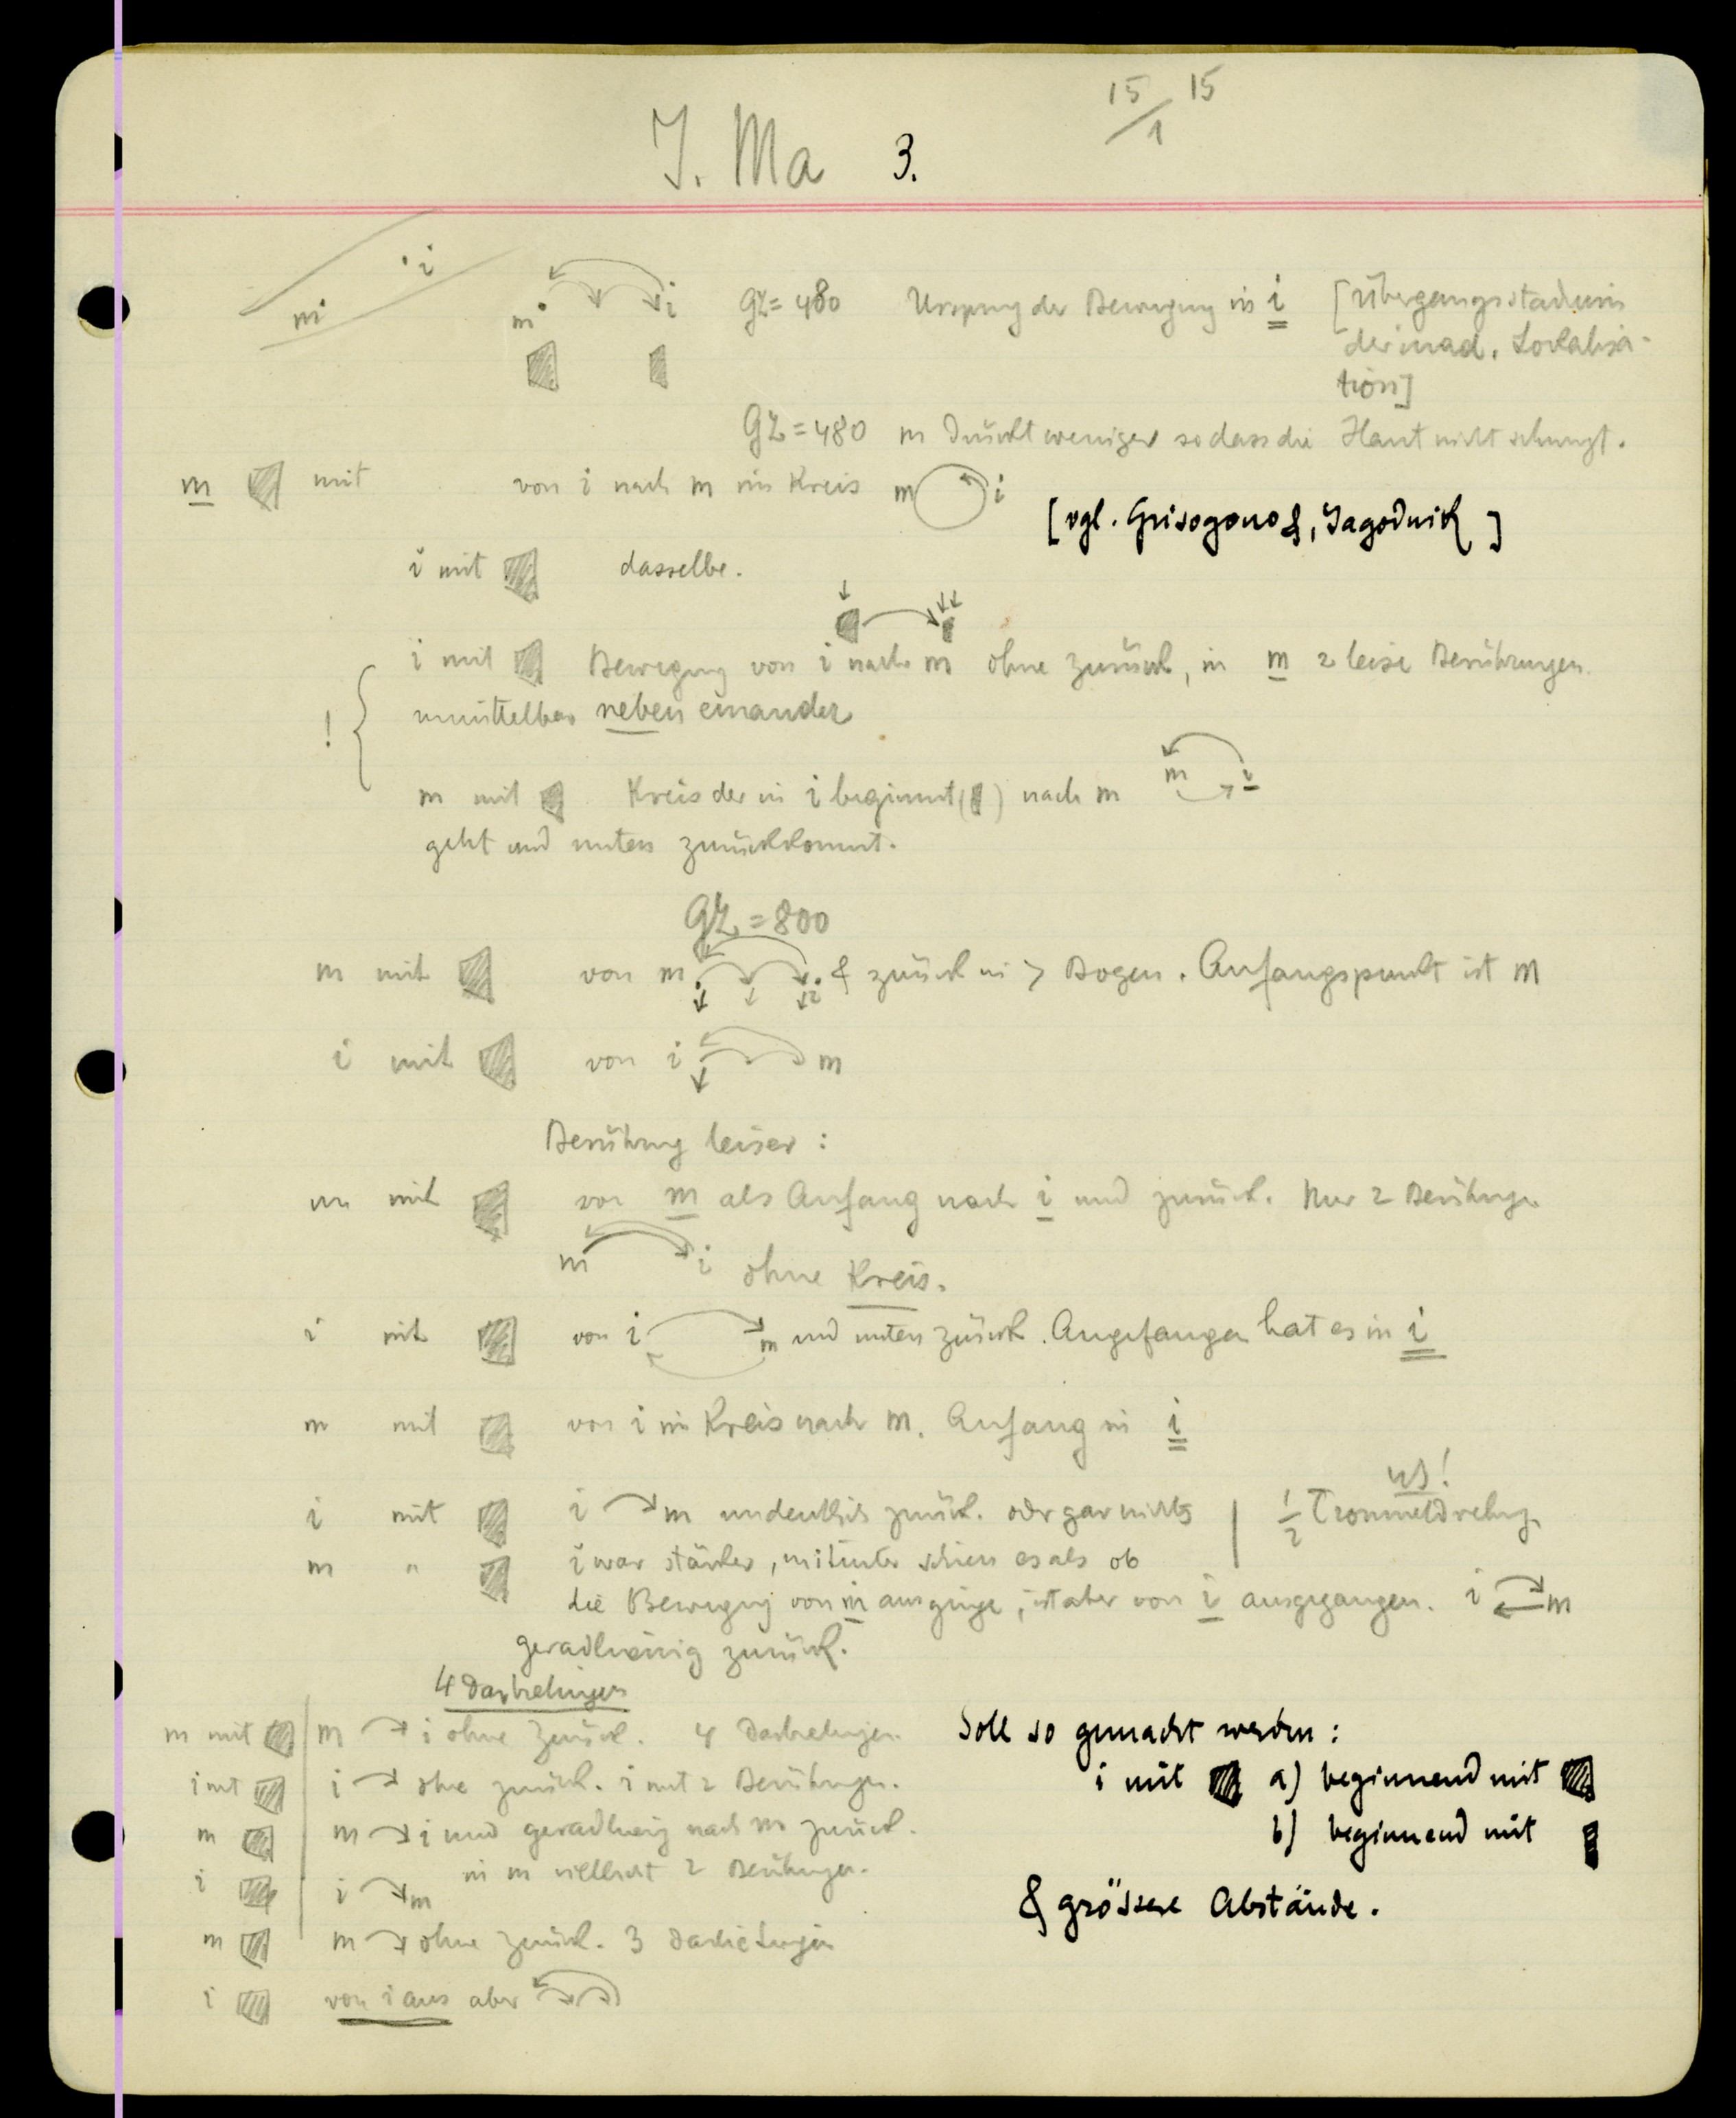 15/1 15
J. Ma 3.
m i
m i GZ = 480 Ursprung der Bewegung in i [Übergangsstadium
der inad. Lokalisa-
tion]
GZ = 480 m drückt weniger sodass die Haut nicht schwingt.
m mit von i nach m im Kreis m i
[vgl. Grisogono &, Jagodnik]
i mit dasselbe.
i mit Bewegung von i nach m ohne zurück, in m 2 leise Berührungen
! unmittelbar neben einander
m mit Kreis der in i beginnt ( ) nach m m i
geht und unten zurückkommt.
GZ = 800
m mit von m i & zurück in > Bogen. Anfangspunkt ist m
i mit von i m
Berührung leiser :
m mit von m als Anfang nach i und zurück. Nur 2 Berührungen
m i ohne Kreis.
i mit von i m und unten zurück. Angefangen hat es in i
m mit von i im Kreis nach m. Anfang in i
i mit i m undeutlich zurück. oder gar nichts
1/2 Trommeldrehung
m " i war stärker, mitunter schien es als ob
die Bewegung von m ausginge, ist aber von i ausgegangen. i m
geradlinig zurück.
4 Darbietungen
m mit m i ohne zurück. 4 Darbietungen.
i mit i ohne zurück. i mit 2 Berührungen.
m m i und geradlinig nach m zurück.
in m vielleicht 2 Berührungen.
i i m
m m ohne zurück. 3 Darbietungen
i von i aus aber
Soll so gemacht werden :
i mit a) beginnend mit
b) beginnend mit
& grössere Abstände.